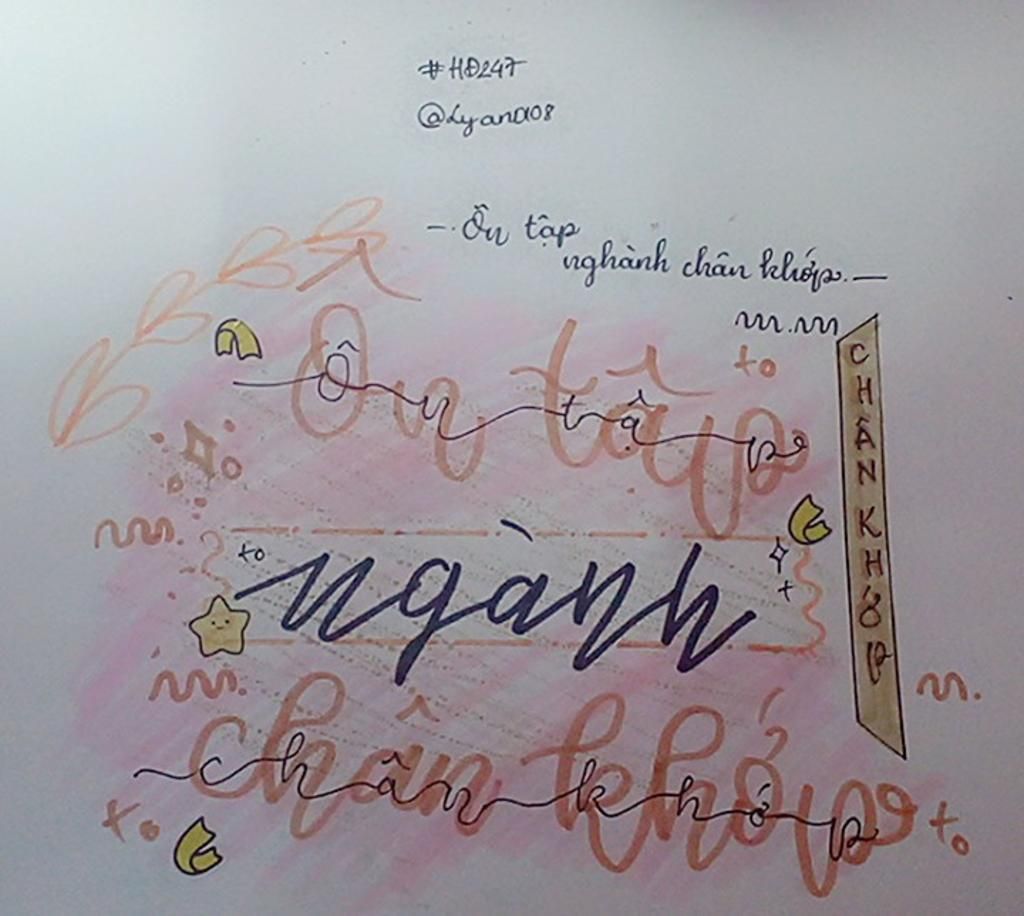 #HĐ247
@Lyana08
- Ôn tập
nghành chân khớp. -
Ôn tập
Ôn tập
ngành
chân khớp
chân khớp
CHÂN KHỚP